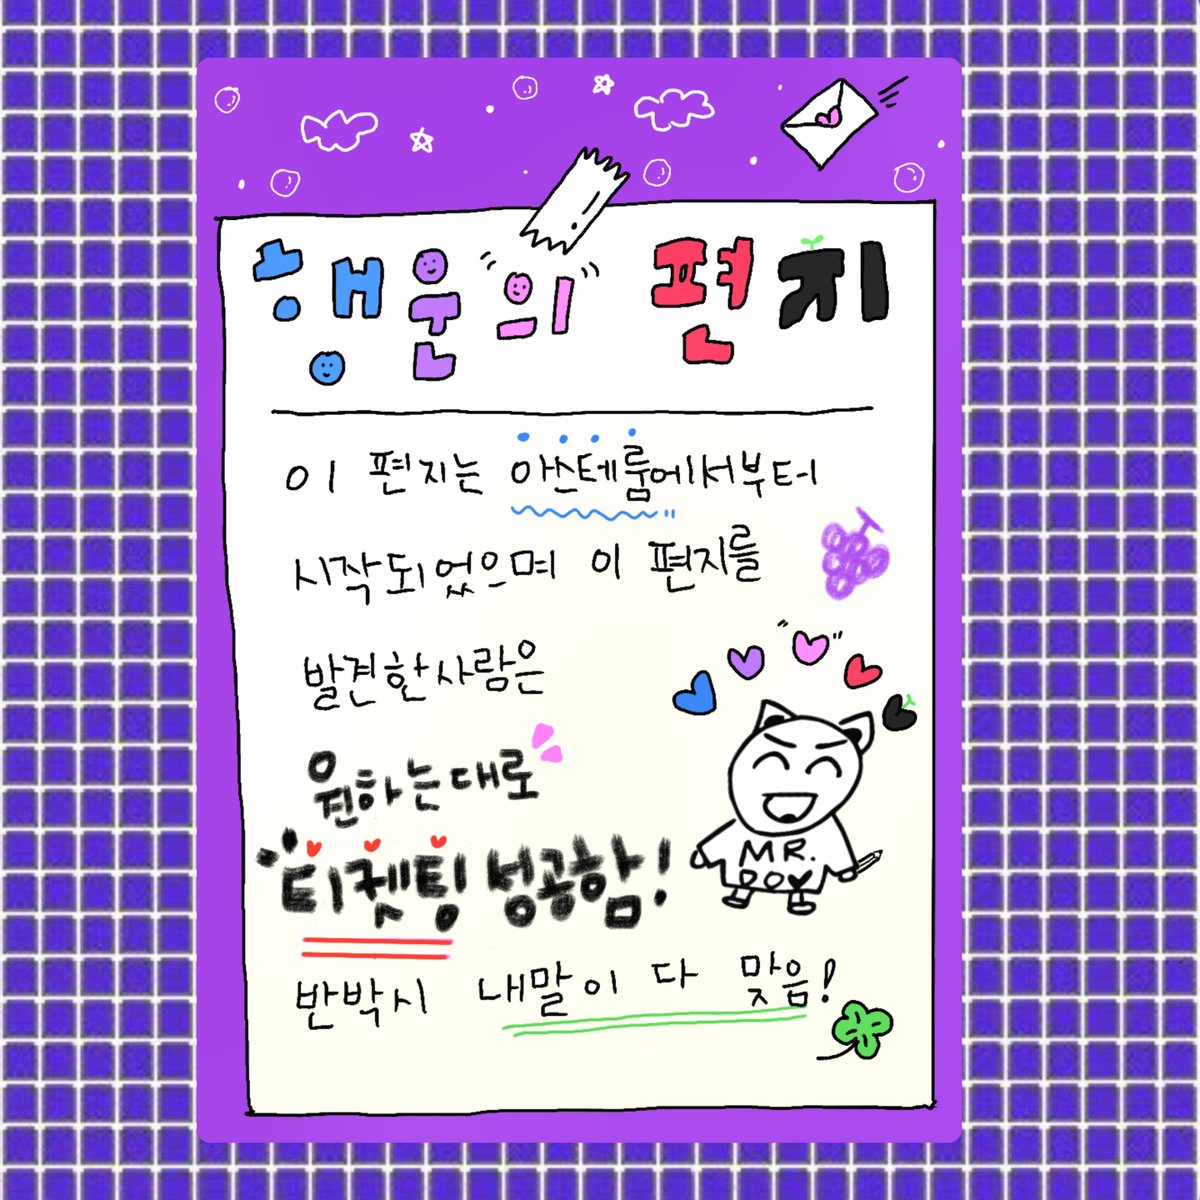 행운의 편지
이 편지는 아스테룸에서부터
시작되었으며 이 편지를
발견한 사람은
원하는대로
티켓팅 성공함!
MR.
DO♥
반박시 내말이 다 맞음!